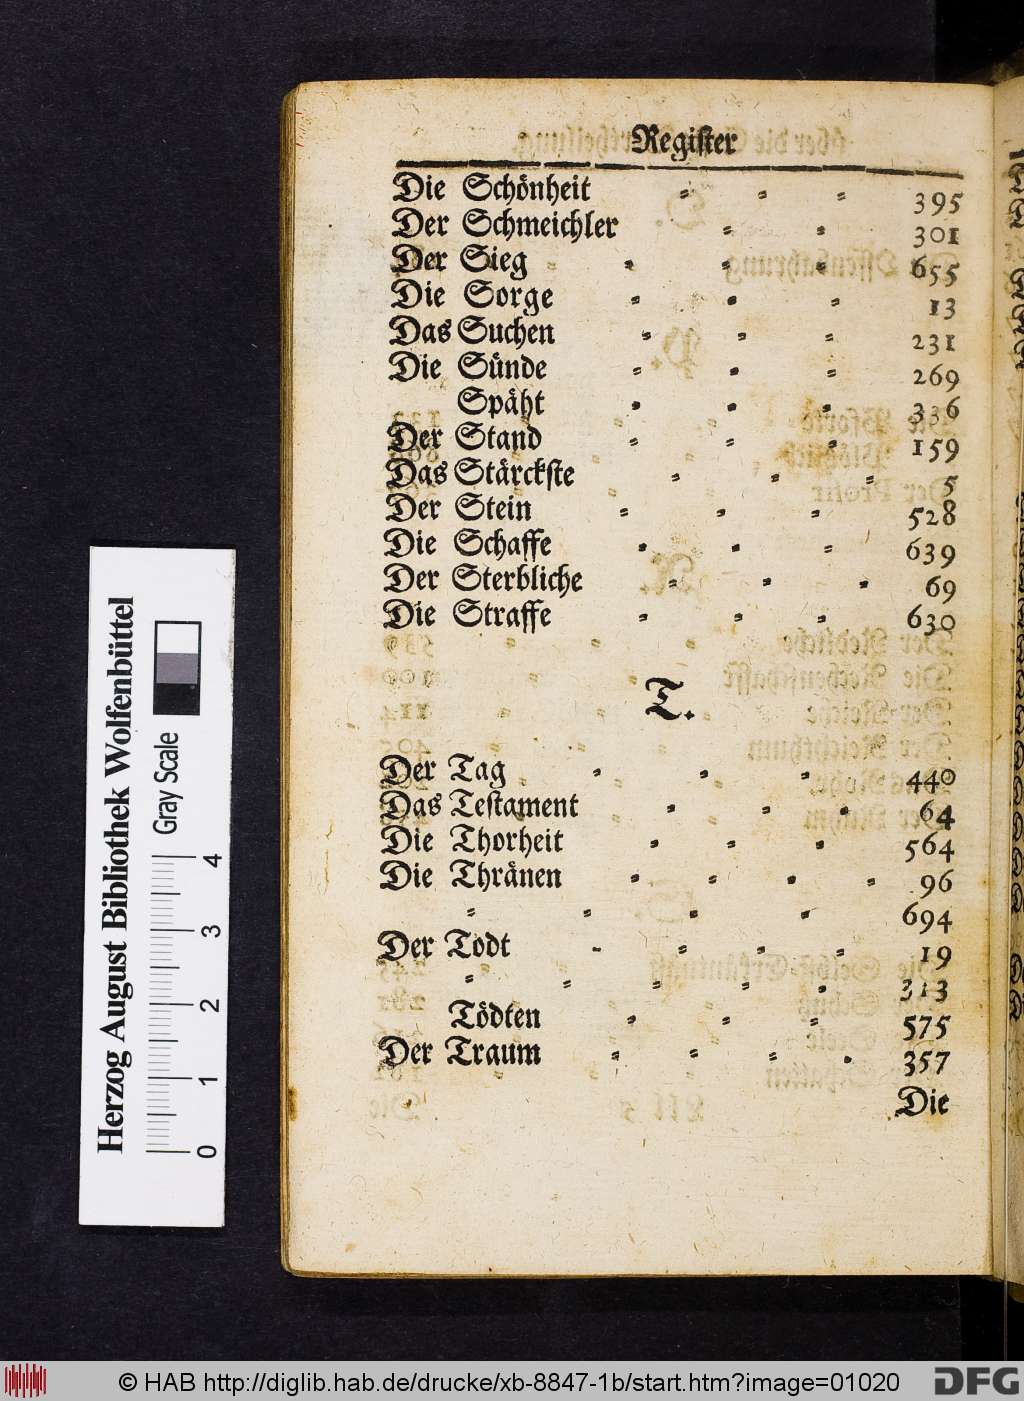 Register
Die Schönheit = = = 395
Der Schmeichler = = 301
Der Sieg = = = 655
Die Sorge = = = 13
Das Suchen = = = 231
Die Sünde = = = 269
Späht = = = 336
Der Stand = = = 159
Das Stärckste = = = 5
Der Stein = = = 528
Die Schaffe = = = 639
Der Sterbliche = = = 69
Die Straffe = = = 630
T.
Der Tag = = = 440
Das Testament = = = 64
Die Thorheit = = = 564
Die Thränen = = = = 96
= = = = 694
Der Todt = = = = 19
= = = = = 313
Tödten = = = 575
Der Traum = = = = 357
Die
Herzog August Bibliothek Wolfenbüttel
Gray Scale
0 1 2 3 4
© HAB http://diglib.hab.de/drucke/xb-8847-1b/start.htm?image=01020
DFG